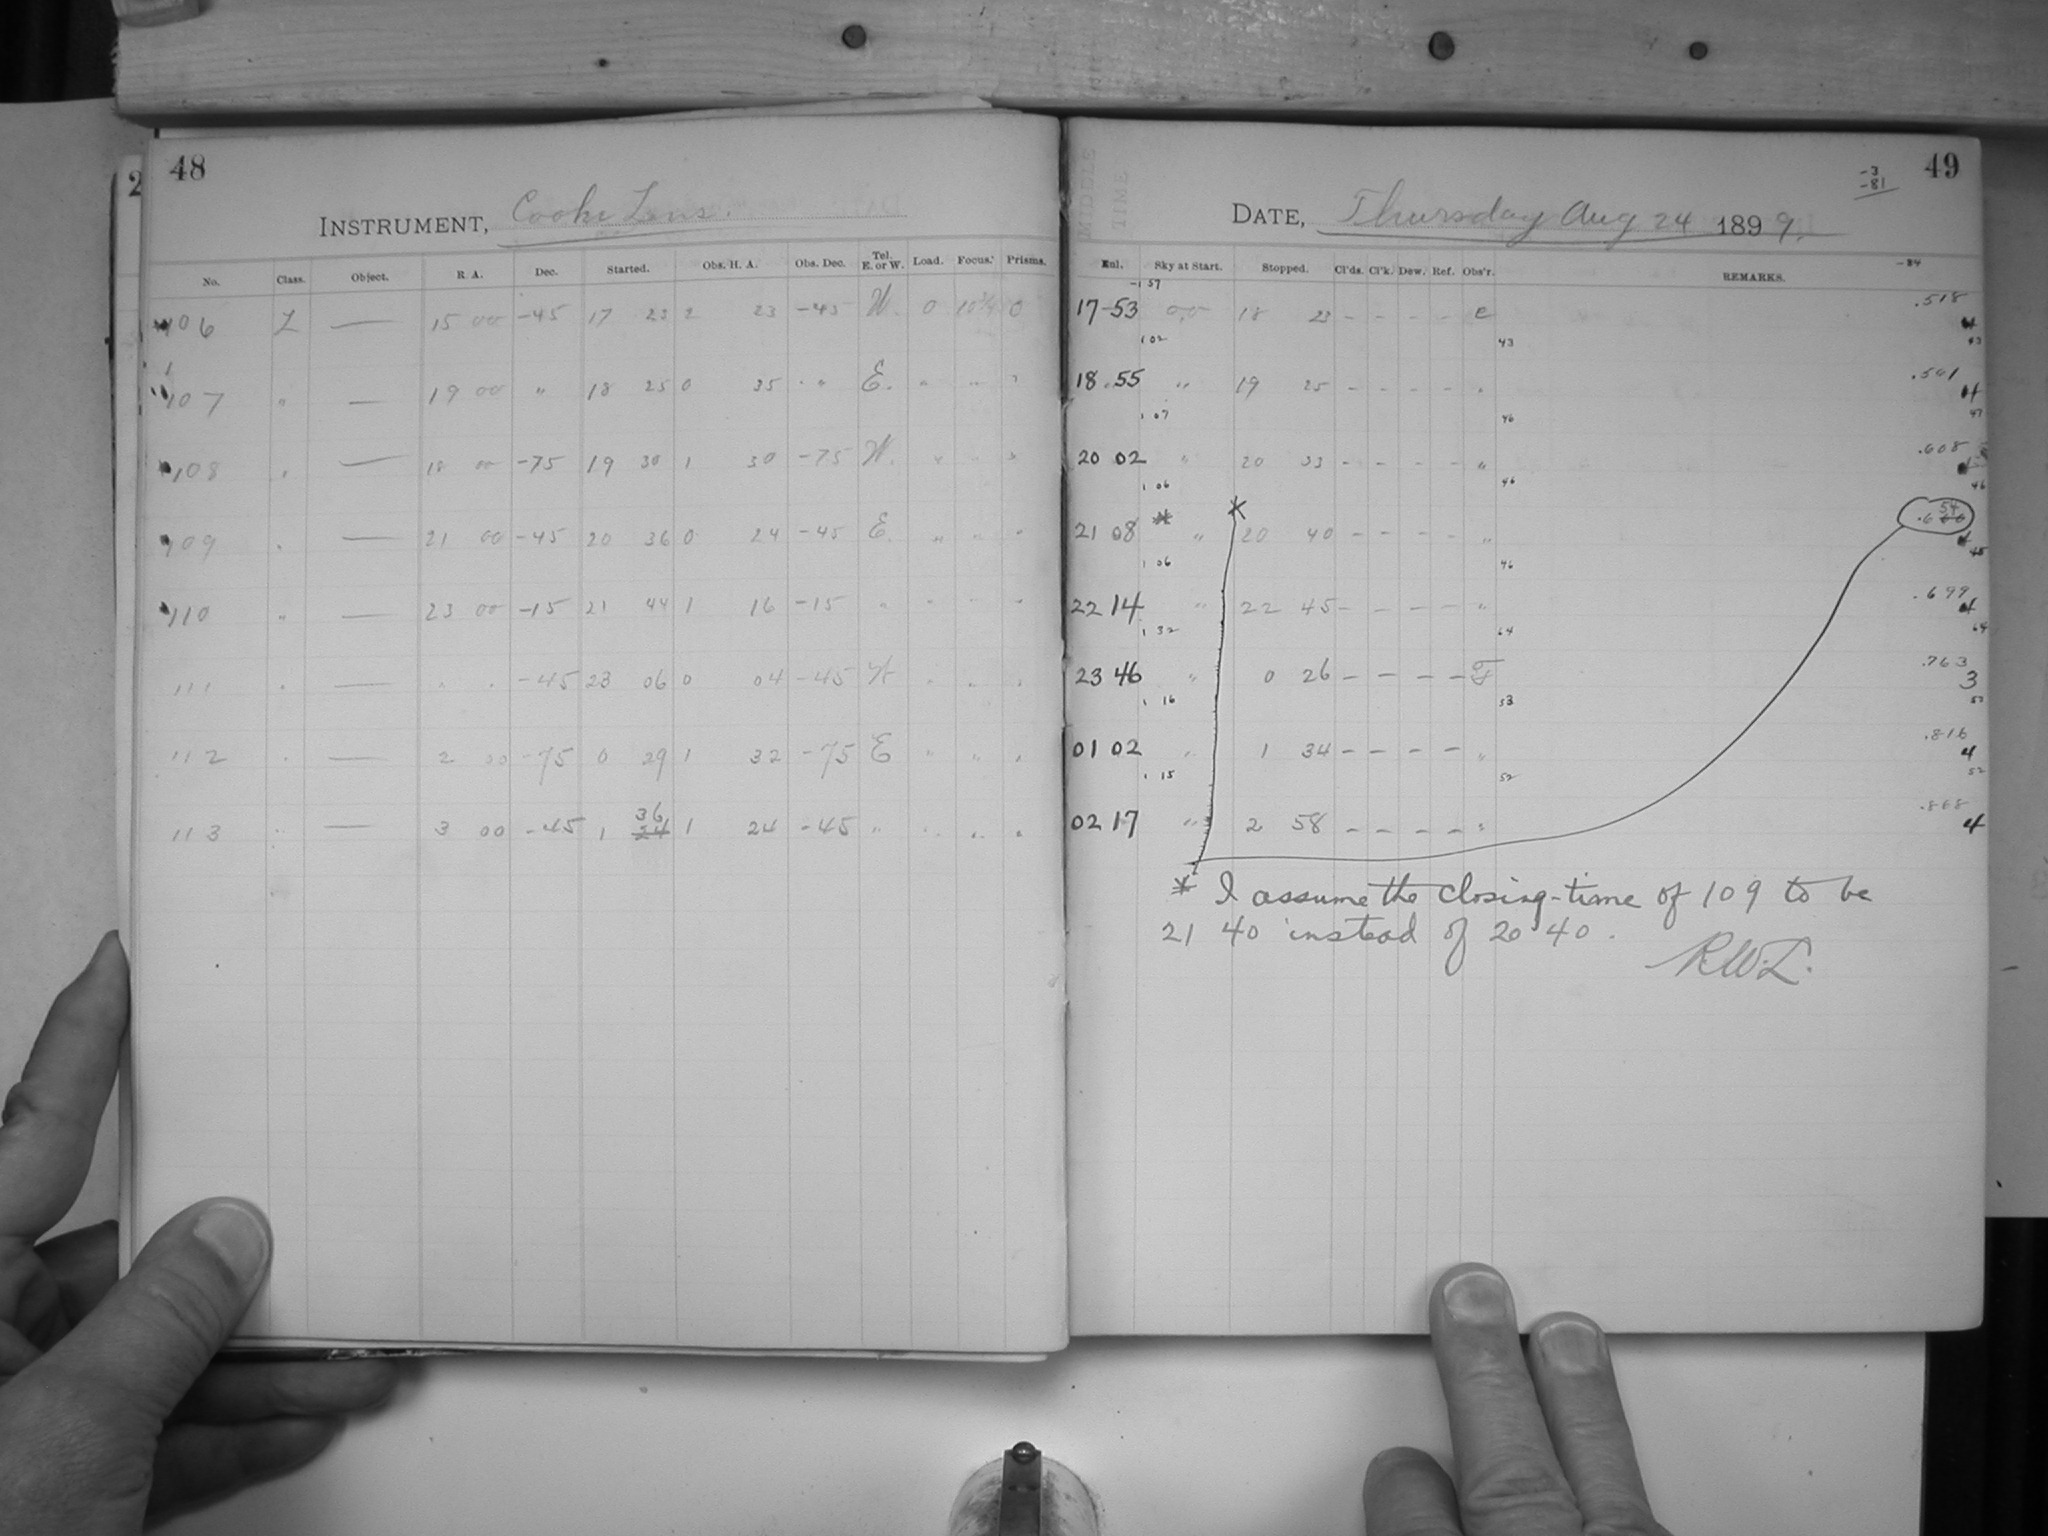 48
INSTRUMENT, Cooke Lens.
No. Class. Object. R. A. Dec. Started. Obs. H. A. Obs. Dec. Tel. E. or W. Load. Focus. Prisms.
106 L — 15 00 -45 17 23 2 23 -45 W. 0 0
107 " — 19 00 " 18 25 0 35 " E. " "
108 " — 18 00 -75 19 30 1 30 -75 W. " "
109 " — 21 00 -45 20 36 0 24 -45 E. " " "
110 " — 23 00 -15 21 44 1 16 -15 " " " "
111 " — " " -45 23 06 0 04 -45 W " " "
112 " — 2 00 -75 0 29 1 32 -75 E " " "
113 " — 3 00 -45 1 36 24 1 24 -45 " " " "
2
49
-3
-81
DATE, Thursday Aug 24 1899.
MIDDLE
TIME
Sky at Start. Stopped. Cl'ds. Cl'k. Dew. Ref. Obs'r. REMARKS. -84
17-53 18 23 - - - - c .518
1 02 43 43
18.55 " 19 25 - - - - " .561 4
1 07 46 47
20 02 " 20 33 - - - - " .608
1 06 46 46
21 08 * " * 20 40 - - - - " 54
1 06 46 45
22 14 " 22 45 - - - - " .699 4
1 32 64 64
23 46 " 0 26 - - - - F .763 3
1 16 53 53
01 02 " 1 34 - - - - " .816 4
1 15 52 52
02 17 " 2 58 - - - - " .868 4
* I assume the closing-time of 109 to be
21 40 instead of 20 40.
R.W.L.